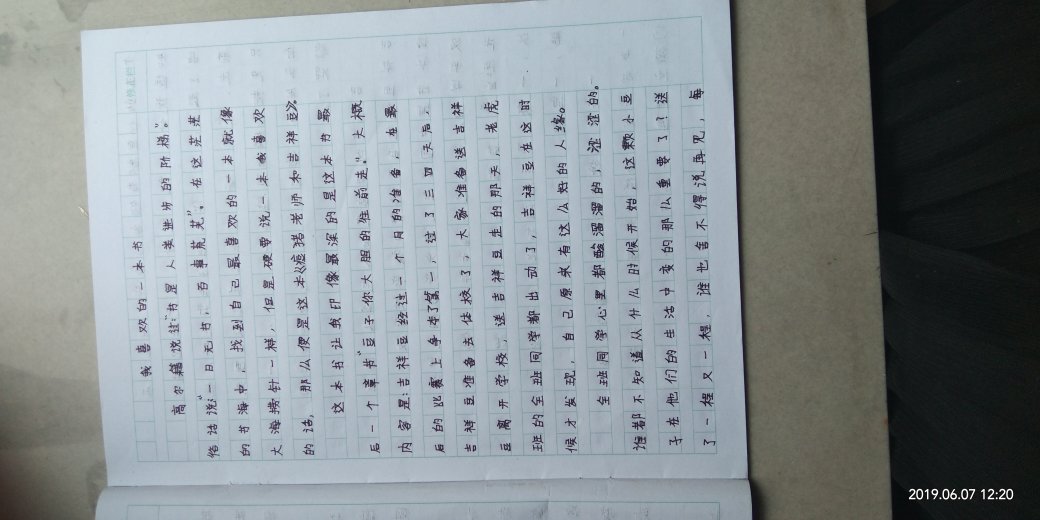 我喜欢的一本书
高尔基说过:“书是人类进步的阶梯”。
俗话说:“一日无书,百事荒芜”。在这茫茫
的书海中,找到自己最喜欢的一本就像
大海捞针一样,但是硬要说一本我喜欢
的话,那么便是这本《疯猪老师和吉祥豆》。
这本书让我印像最深的是这本书最
后一个章节“豆子,你大胆的往前走。”大概
内容是:吉祥豆经过一个月的准备,在最
后的比赛上争夺了第一,过了三四天后,
吉祥豆准备去体校了,大家准备送吉祥
豆离开学校,送吉祥豆走的那天,老虎
班的全班同学都出动了,吉祥豆在这时
候才发现,自己原来有这么好的人缘。
全班同学心里都酸溜溜的,涩涩的。
谁都不知道从什么时候开始,这颗小豆
子在他们的生活中变的那么重要了?送
了一程又一程,谁也舍不得说再见,每
2019.06.07 12:20